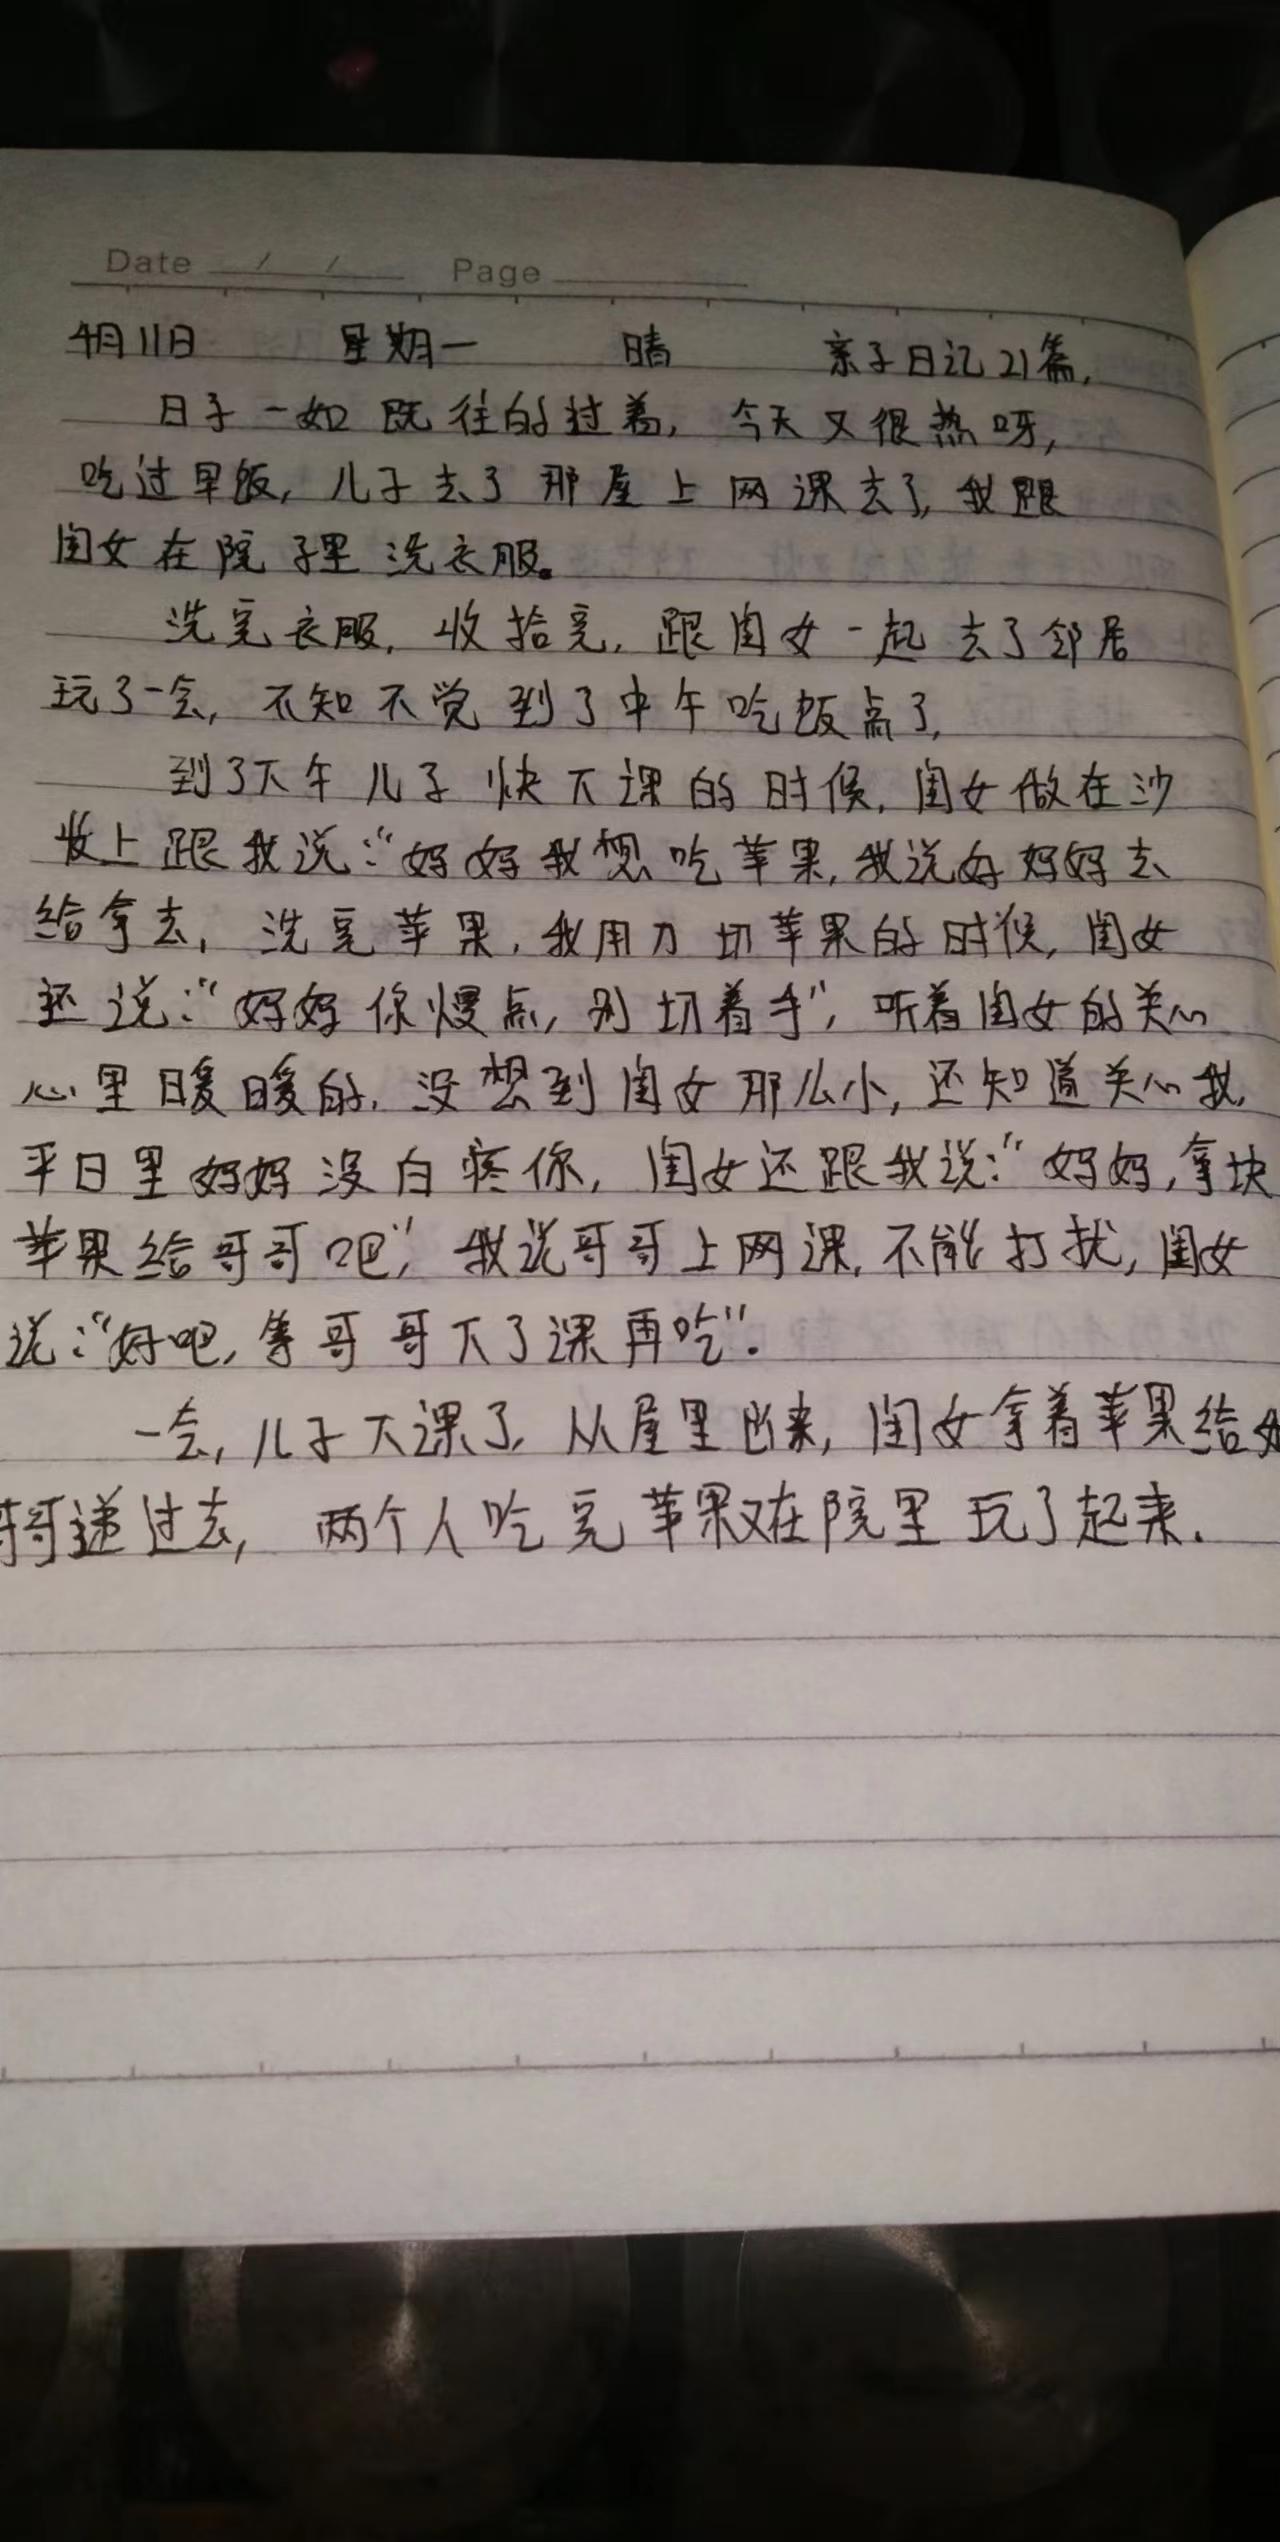 Date / / Page
4月11日 星期一 晴 亲子日记21篇,
日子一如既往的过着,今天又很热呀,
吃过早饭,儿子去了那屋上网课去了,我跟
闺女在院子里洗衣服。
洗完衣服,收拾完,跟闺女一起去了邻居
玩了一会,不知不觉到了中午吃饭点了,
到了下午儿子快下课的时候,闺女做在沙
发上跟我说:“妈妈我想吃苹果,我说好妈妈去
给拿去,洗完苹果,我用刀切苹果的时候,闺女
还说:“妈妈你慢点,别切着手”,听着闺女的关心
心里暖暖的,没想到闺女那么小,还知道关心我,
平日里妈妈没白疼你,闺女还跟我说:“妈妈,拿块
苹果给哥哥吧”,我说哥哥上网课,不能打扰,闺女
说:“好吧,等哥哥下了课再吃”.
一会,儿子下课了,从屋里出来,闺女拿着苹果给
哥哥递过去,两个人吃完苹果又在院里玩了起来.